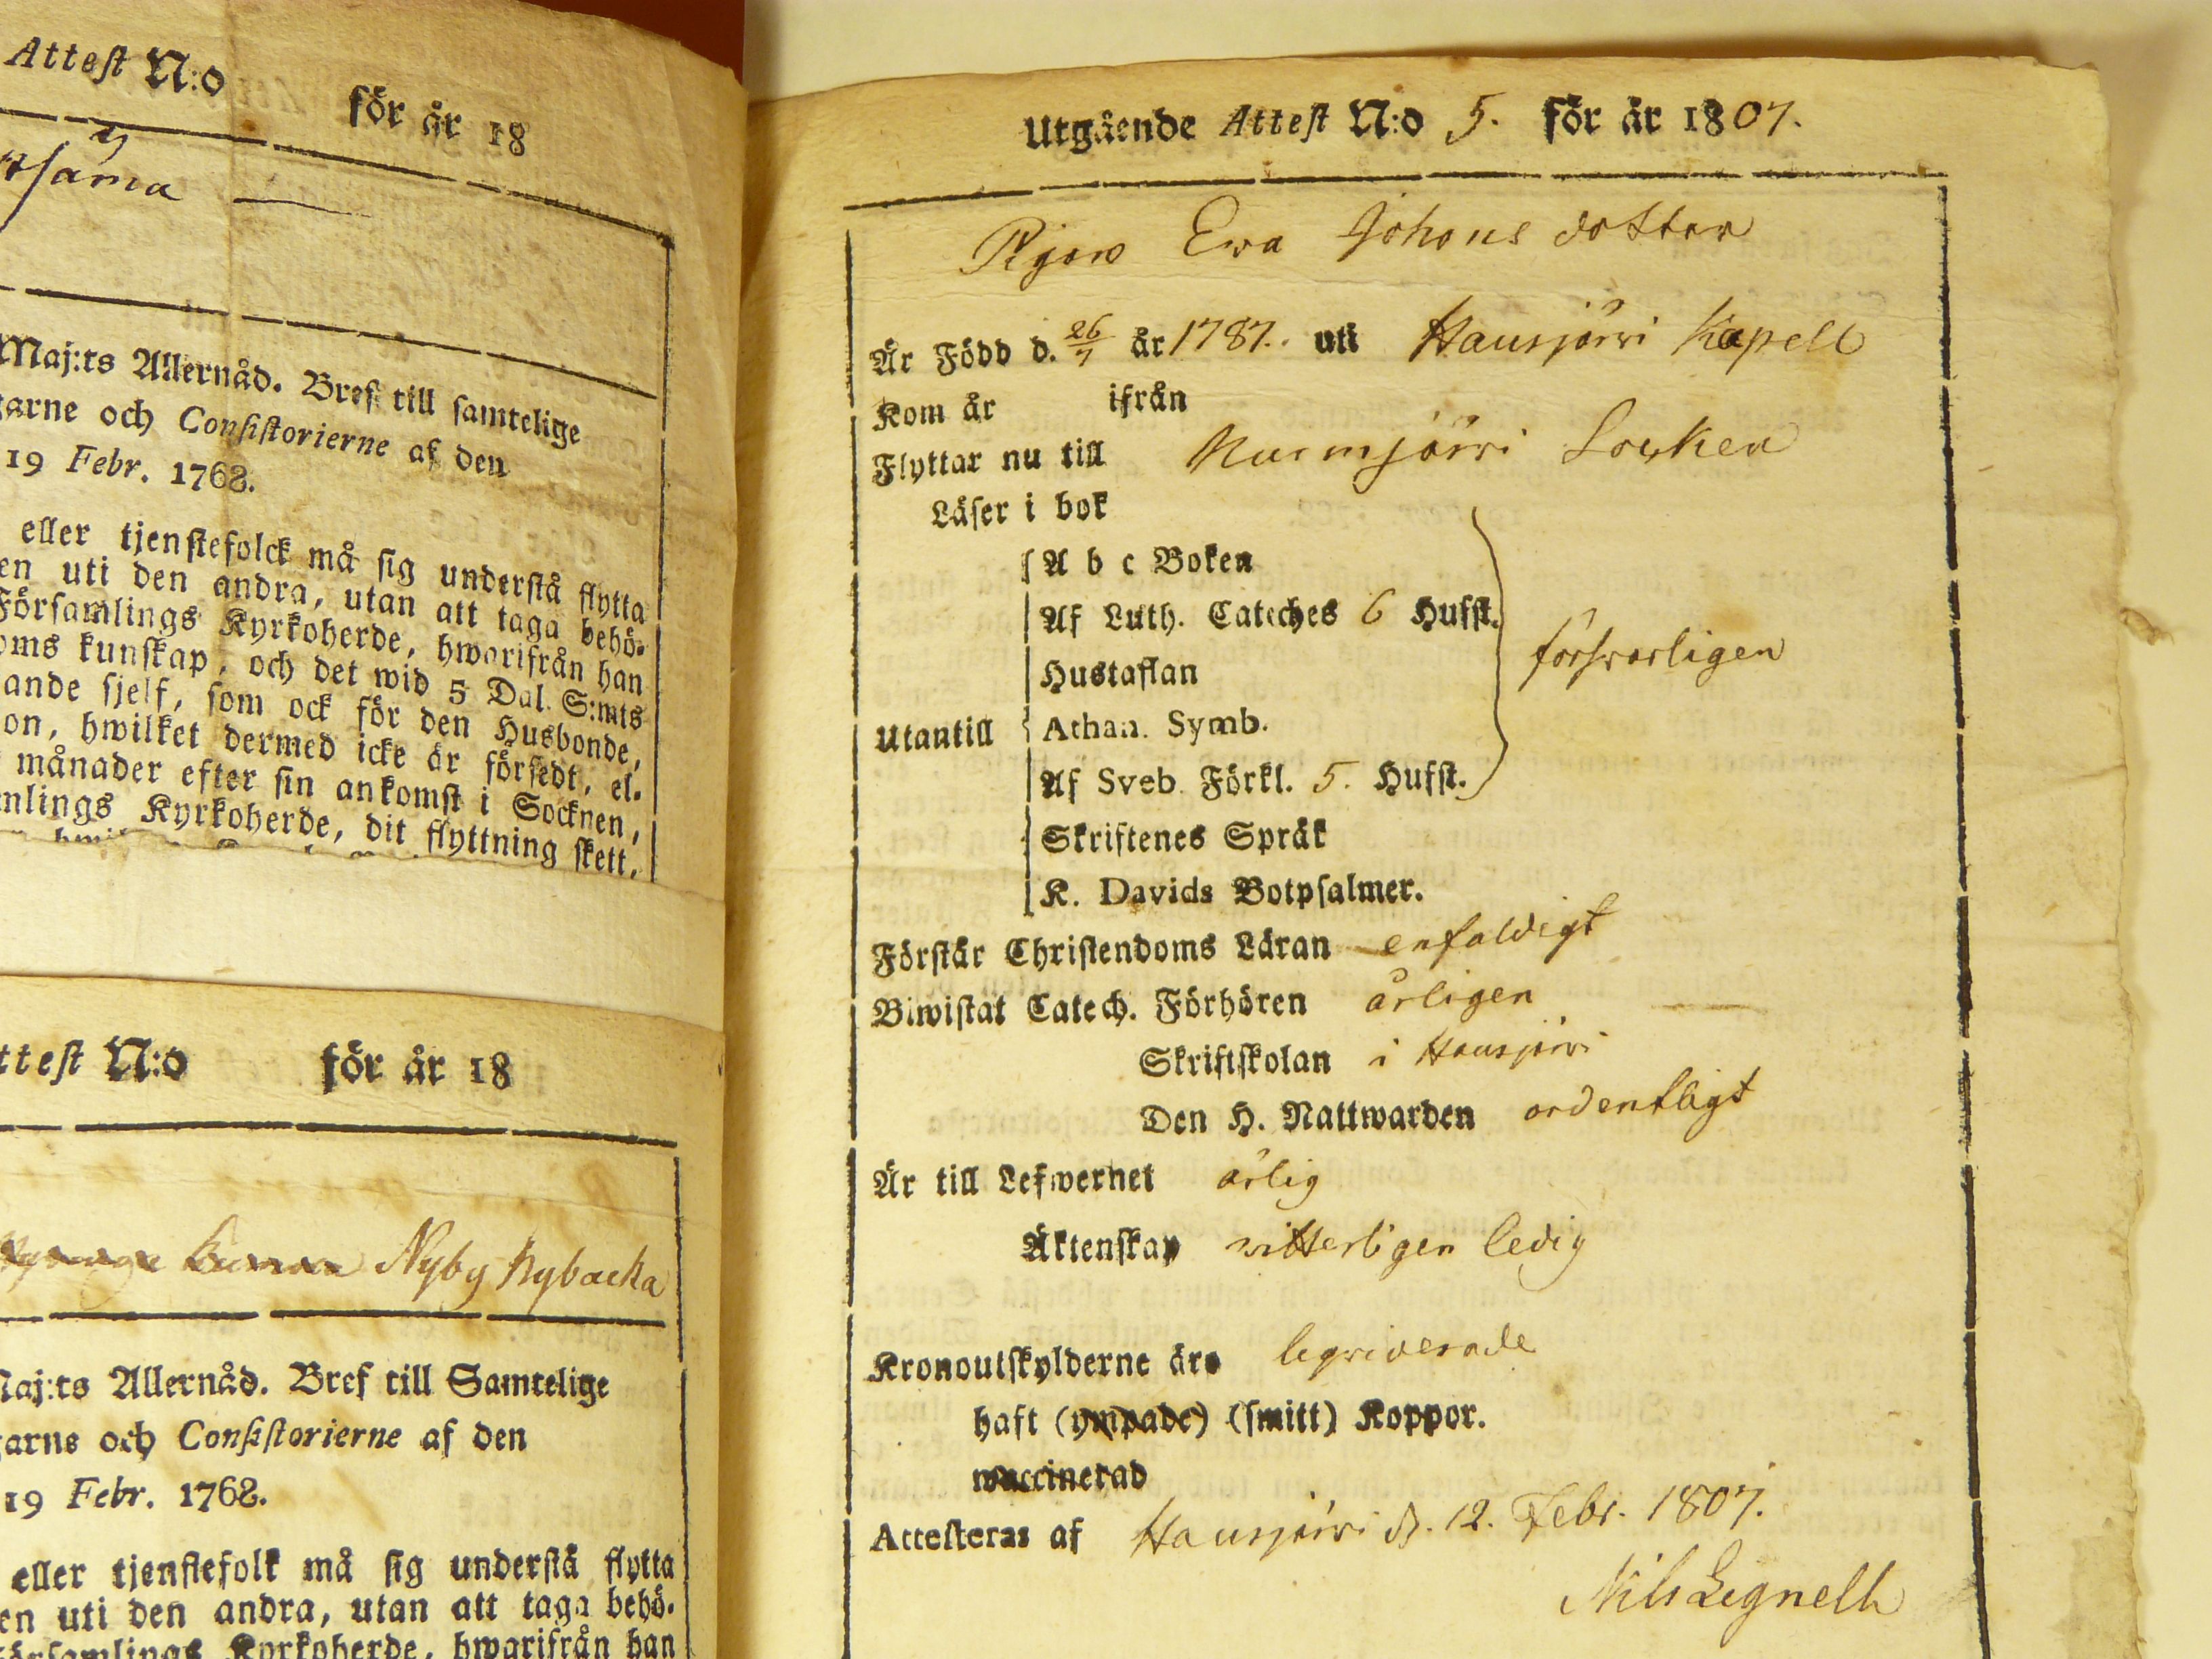 Attest N:o för år 18
Maj:ts Allernåd. Bref till samtelige
arne och Consistorierne af den
19 Febr. 1768.
eller tjenstefolck må sig understå flytta
en uti den andra, utan att taga behö-
Församlings Kyrkoherde, hwarifrån han
oms kunskap, och det wid 5 Dal. S:mts
ande sjelf, som ock för den Husbonde,
on, hwilket dermed icke är försedt, el-
månader efter sin ankomst i Socknen,
mlings Kyrkoherde, dit flyttning skett,
ttest N:o för år 18
Nyby Nybacka
Maj:ts Allernåd. Bref till Samtelige
arne och Consistorierne af den
19 Febr. 1768.
eller tjenstefolk må sig understå flytta
en uti den andra, utan att taga behö-
örsamlings Kyrkoherde, hwarifrån han
Utgående Attest N:o 5. för år 1807.
Pigan Ewa Johans dotter
Är Född d. 26/7 år 1787. uti Hausjärwi Kapell
Kom år ifrån
Flyttar nu till Nurmjärwi Socken
Läser i bok
A b c Boken
Af Luth. Cateches 6 Hufst.
Hustaflan försvarligen
Utantill Athan. Symb.
Af Sveb. Förkl. 5. Hufst.
Skriftenes Språk
K. Davids Botpsalmer.
Förstår Christendoms Läran enfaldigt
Biwistat Catech. Förhören årligen
Skriftskolan i Hausjärwi
Den H. Nattwarden ordentligt
Är till Lefwernet ärlig
Äktenskap witterligen ledig
Kronoutskylderne äro liqviderade
haft (ympade) (smitt) Koppor.
waccinerad
Attesteras af Hausjärwi d. 12. Febr. 1807.
Nils Legnell